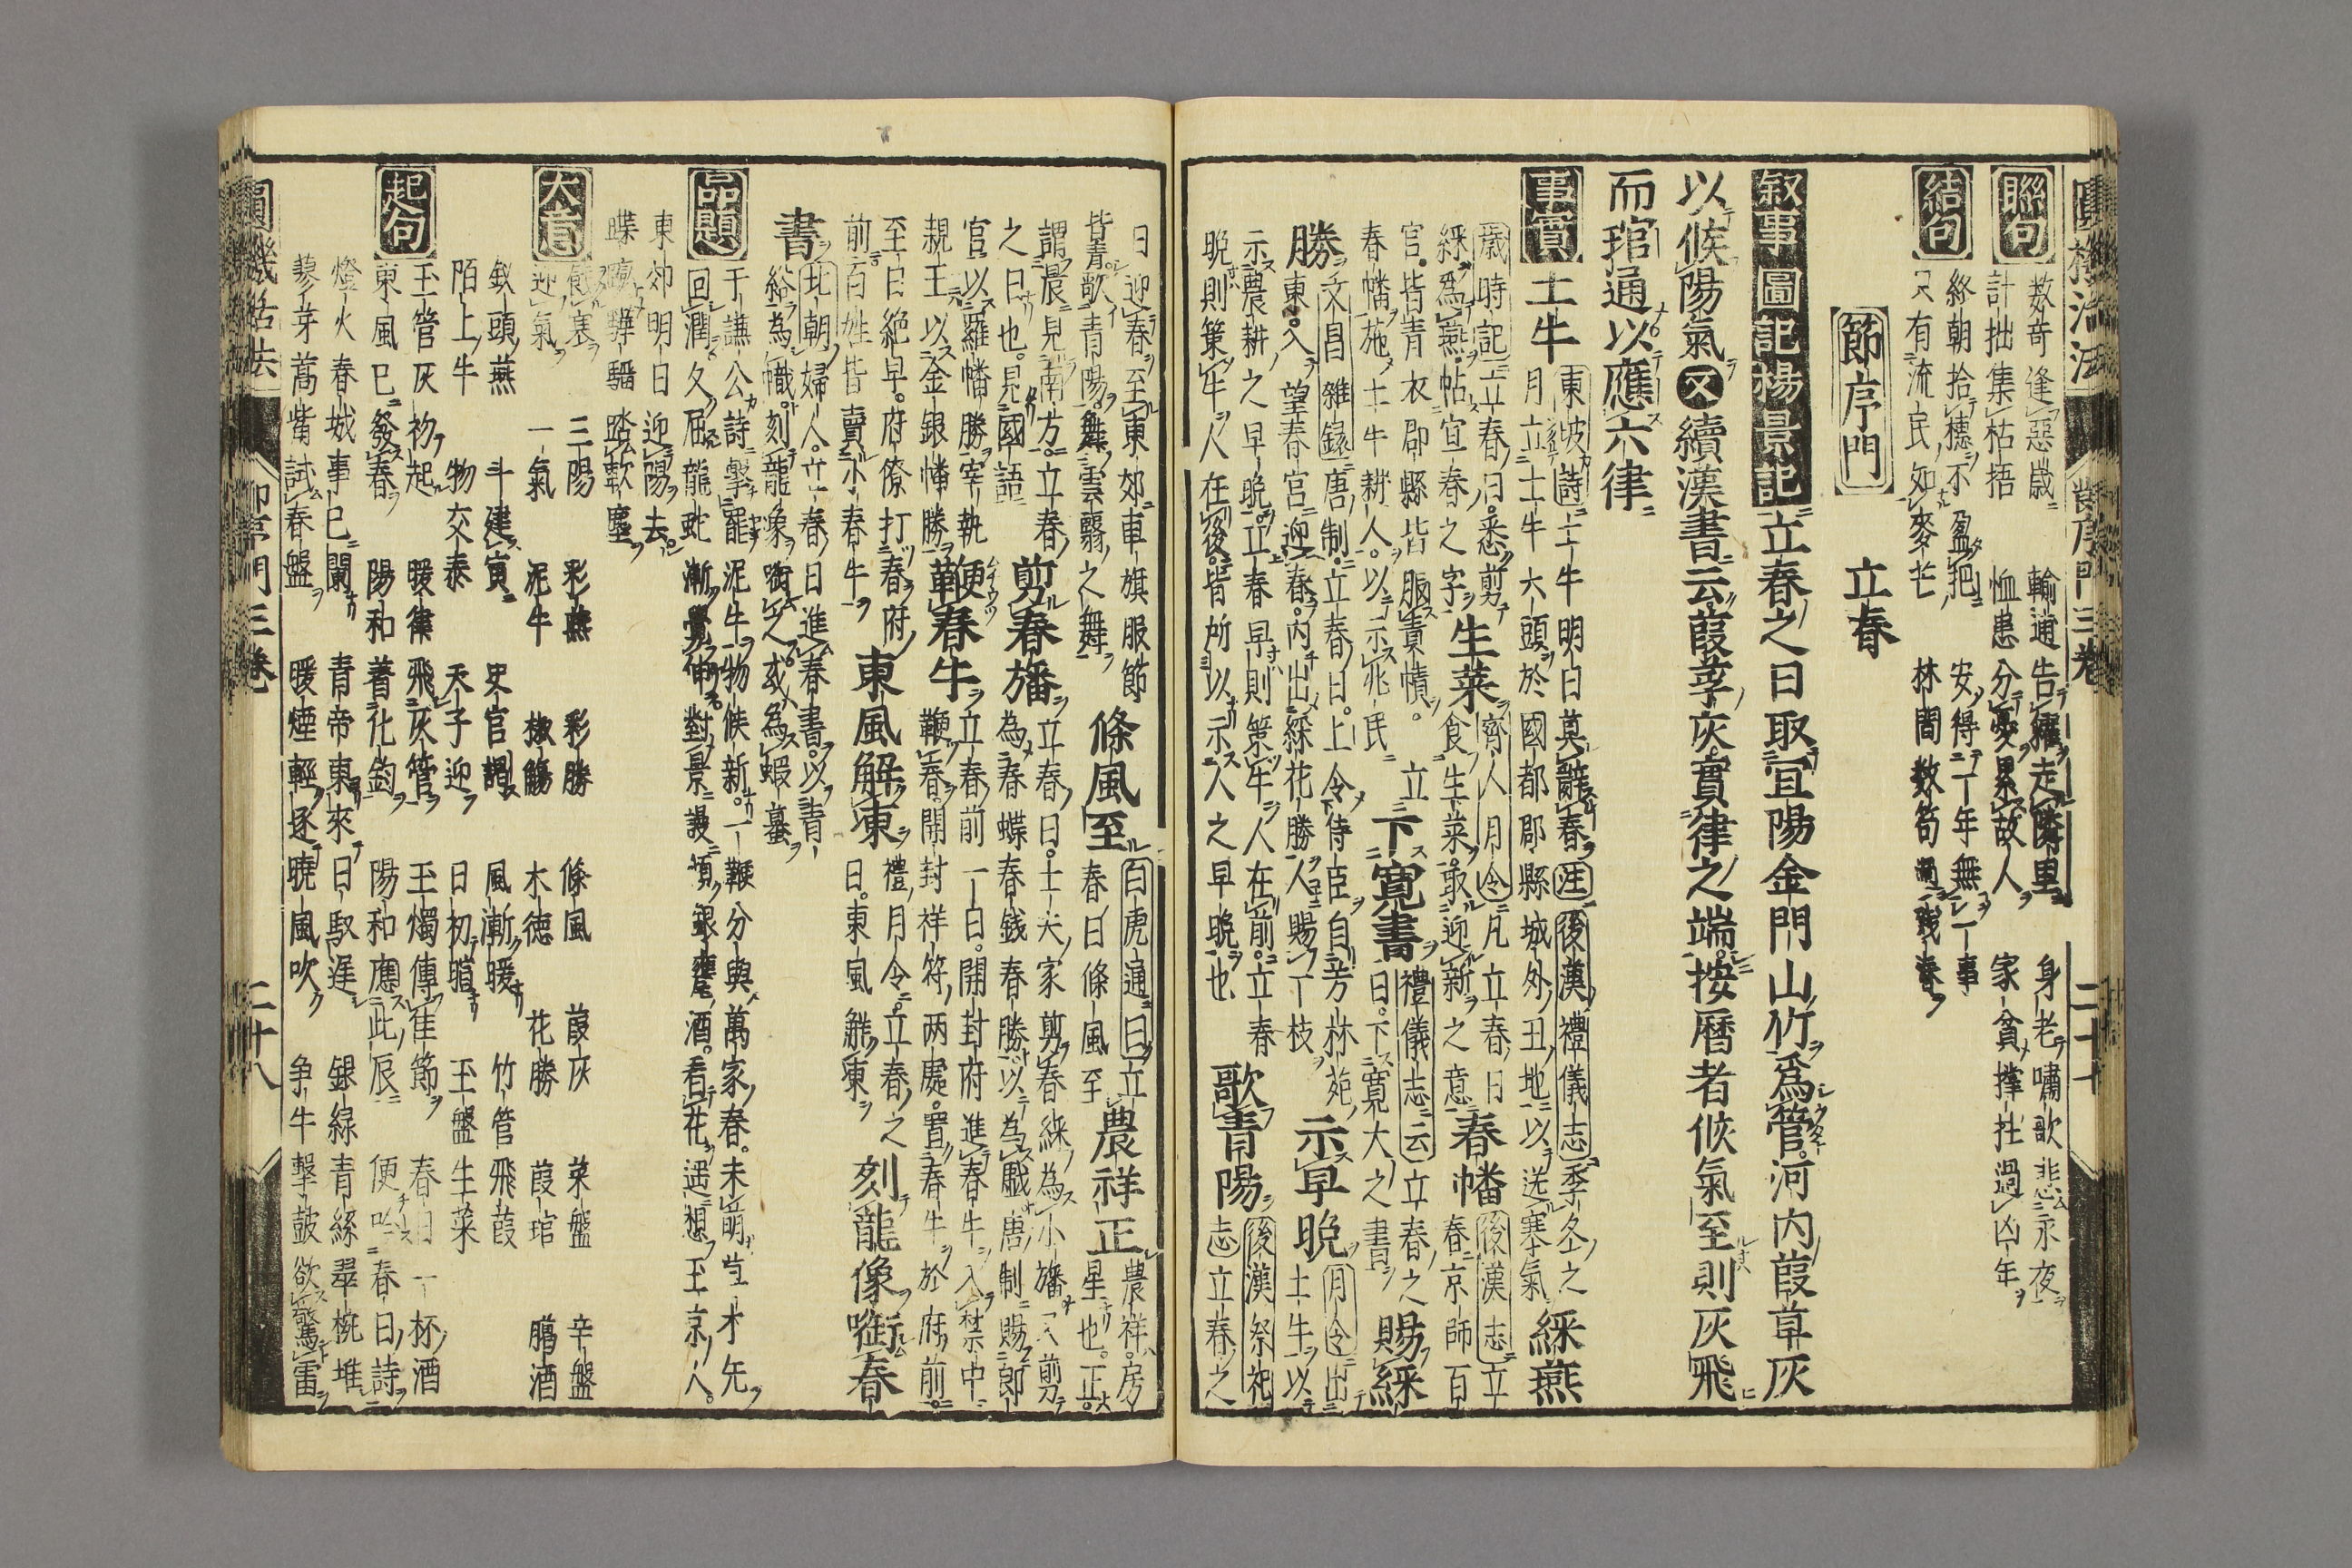 圓機活法 節序門三卷 二十七
聯句 数奇逢惡歳 輸逋告糴走隣里 身老嘯歌悲永夜
計拙集枯梧 恤患分憂累故人 家貧撑拄過凶年
結句 終朝拾穗不盈把 安得丁年無一事
只有流民如麥芒 林間数筍過残春
節序門 立春
叙事 圖記楊景記 立春之日取宜陽金門山竹爲管河内葭草灰
以候陽氣又續漢書云葭莩灰實律之端按曆者候氣至則灰飛
而琯通以應六律
事實 土牛 東坡詩土牛明日莫辭春注後漢禮儀志季冬之
月立土牛六頭於國都郡縣城外丑地以送寒氣 綵燕
歳時記立春日悉剪
綵爲燕帖宜春之字 生菜 齊人月令凡立春日
食生菜取迎新之意 春幡 後漢志立
春京師百
官皆青衣郡縣皆服青幘
春幡施土牛耕人以示兆民 下寛書 禮儀志云立春之
日下寛大之書 賜綵
勝 文昌雜録唐制立春日上令侍臣自芳林苑
東入望春宮迎春内出綵花勝人賜一枝 示早晩 月令出
土牛以
示農耕之早晩立春早則策牛人在前立春
晩則策牛人在後皆所以示人之早晩也 歌青陽 後漢祭祀
志立春之
日迎春至東郊車旗服節
皆青歌青陽舞雲翹之舞 條風至 白虎通曰立
春日條風至 農祥正 農祥房
星也正
謂晨見南方立春
之日也見國語 剪春旛 立春日士夫家剪春綵為小旛
為春蝶春銭春勝以為戯唐制賜郎
官以羅幡勝宰執
親王以金銀幡勝 鞭春牛 立春前一日開封府進春牛入禁中
鞭春開封祥符两處置春牛於府前
至日絶早府僚打春府
前百姓皆賣小春牛 東風解凍 禮月令立春之
日東風解凍 刻龍像啣春
書 北朝婦人立春日進春書以青
繒為幟刻龍象啣之或為蝦蟇
品題 于譙公詩撃罷泥牛物候新一鞭分與萬家春未萌
回潤久屈龍蛇漸覺伸對景謾傾銀甕酒看花遥想玉京人
東郊明日迎陽去
蝶驕驊騮踏軟塵
大意 三陽 彩燕 彩勝 條風 葭灰 菜盤 辛盤
迎氣 一氣 泥牛 椒觴 木徳 花勝 葭琯 臈酒
釵頭燕 斗建寅 史官謁 風漸暖 竹管飛葭
陌上牛 物交泰 天子迎 日初暄 玉盤生菜
起句 玉管灰初起 暖律飛灰管 玉燭傳佳節 春日一杯酒
東風已發春 陽和着化鈞 陽和應此辰 便吟春日詩
燈火春城事已闌 青帝東來日馭遅 銀線青絲翠椀堆
蓼芽蒿觜試春盤 暖煙輕逐曉風吹 争牛撃鼓欲驚雷
圓機活法 節序門三卷 二十八